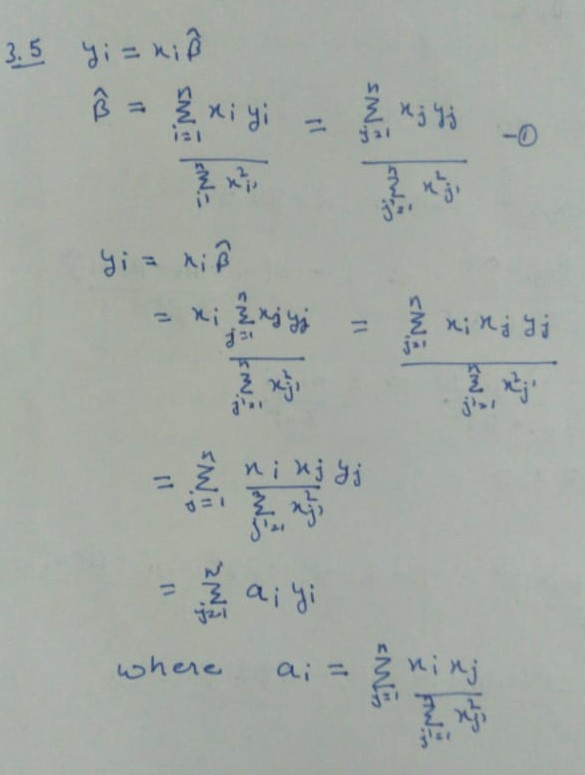 3.5 yi = xi β̂
β̂ = ∑_{i=1}^{n} xi yi / ∑_{i'=1}^{n} x²_{i'} = ∑_{j=1}^{n} xj yj / ∑_{j'=1}^{n} x²_{j'} -①
yi = xi β̂
= xi ∑_{j=1}^{n} xj yj / ∑_{j'=1}^{n} x²_{j'} = ∑_{j=1}^{n} xi xj yj / ∑_{j'=1}^{n} x²_{j'}
= ∑_{j=1}^{n} xi xj / ∑_{j'=1}^{n} x²_{j'} yj
= ∑_{j=1}^{n} ai yi
where ai = ∑_{j=1}^{n} xi xj / ∑_{j'=1}^{n} x²_{j'}